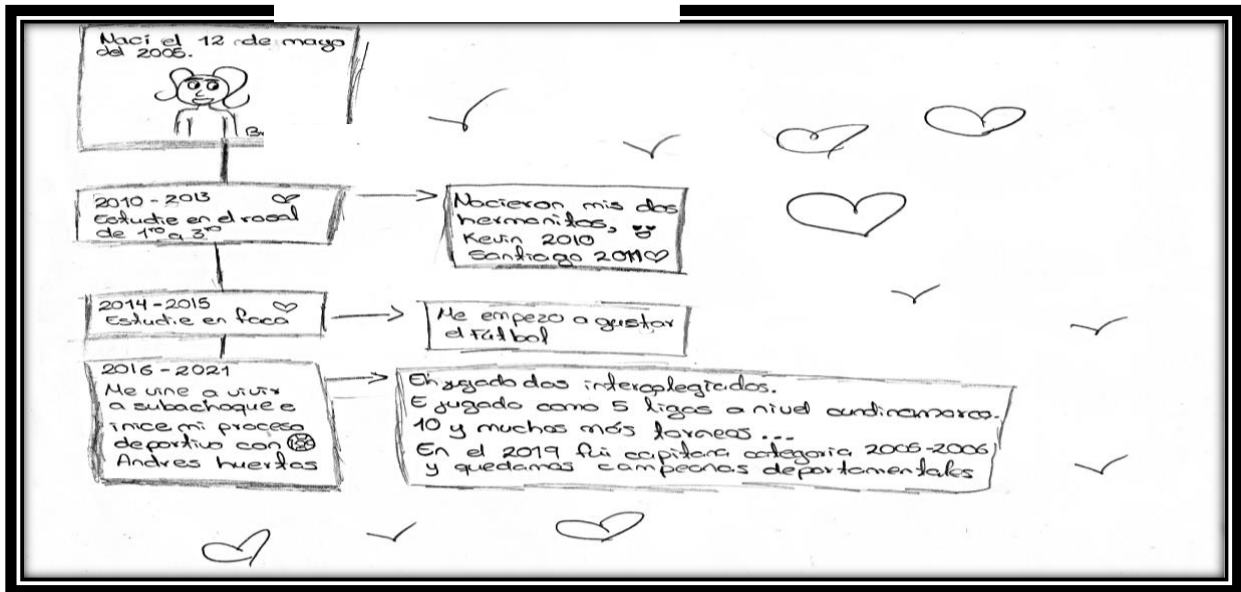 Naci el 12 de mayo
del 2005.
2010 - 2013
Estudie en el rosal
de 1ro a 3ro
Nacieron mis dos
hermanitos,
Kevin 2010
Santiago 2011
2014 - 2015
Estudie en faca
Me empezo a gustar
el Fútbol
2016 - 2021
Me vine a vivir
a subachoque e
inice mi proceso
deportivo con
Andres huertas
Eh jugado dos intercolegiados.
E jugado como 5 ligas a nivel cundinamarca.
10 y muchos más torneos...
En el 2019 fui capitana categoria 2005-2006
y quedamos campeonas departamentales